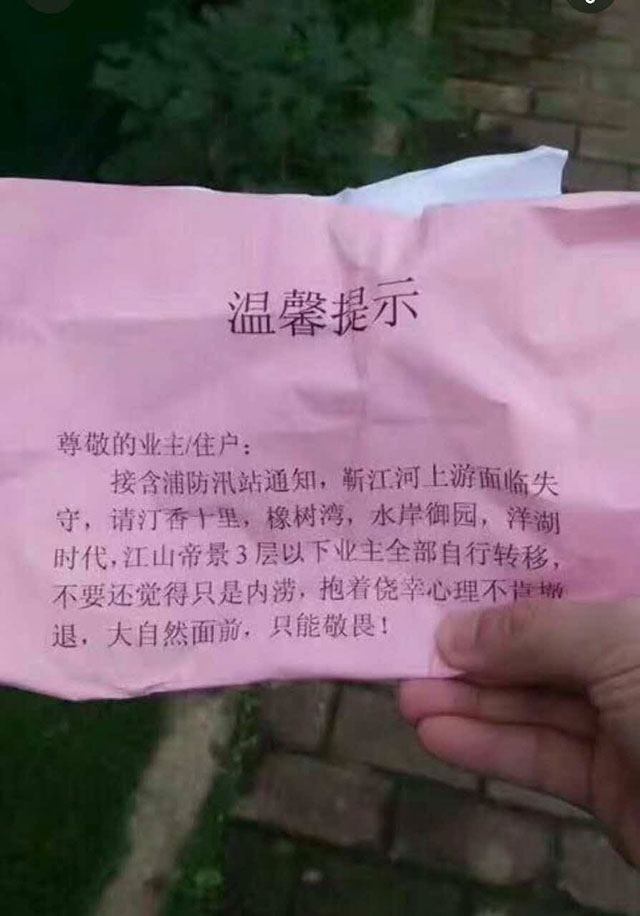 温馨提示
尊敬的业主/住户：
接含浦防汛站通知，靳江河上游面临失
守，请汀香十里，橡树湾，水岸御园，洋湖
时代，江山帝景3层以下业主全部自行转移，
不要还觉得只是内涝，抱着侥幸心理不肯撤
退，大自然面前，只能敬畏！